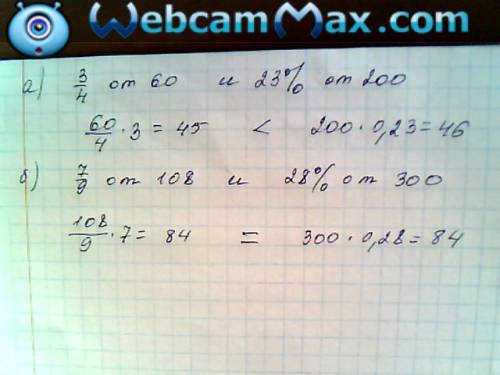 WebcamMax.com
а) 3/4 от 60 и 23% от 200
60/4 · 3 = 45 < 200 · 0,23 = 46
б) 7/9 от 108 и 28% от 300
108/9 · 7 = 84 = 300 · 0,28 = 84